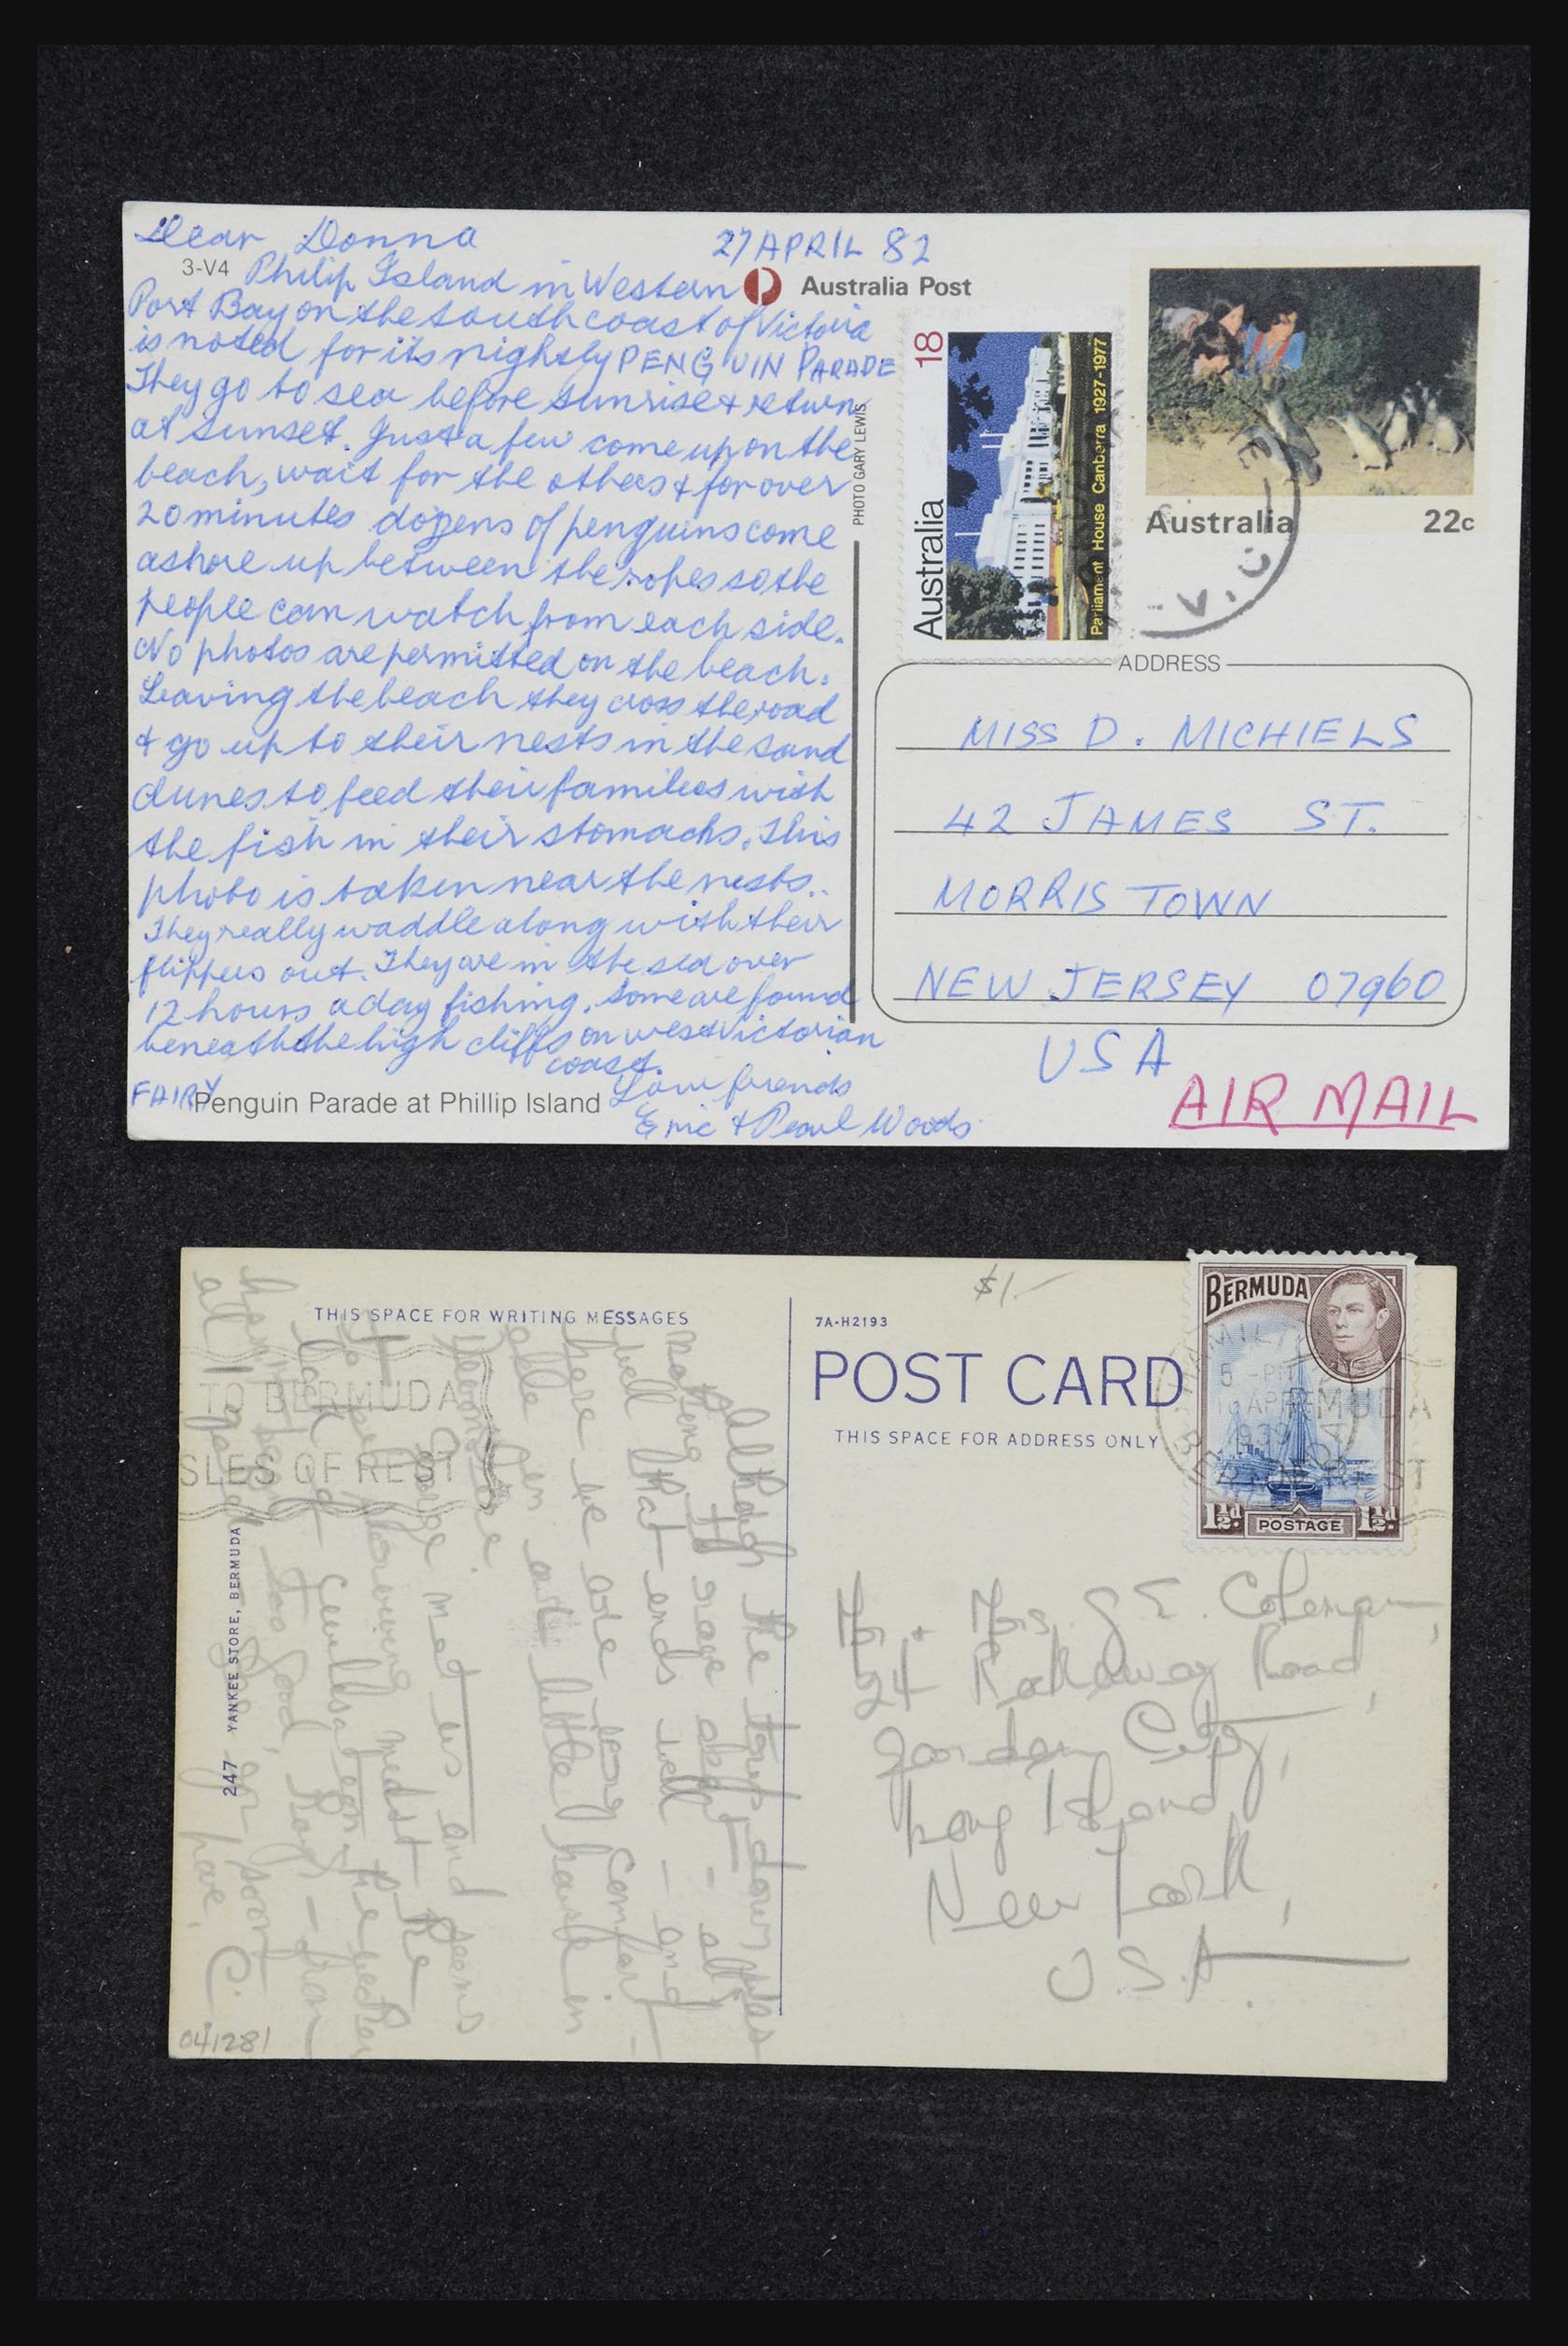 Dear Donna
27 APRIL 82
3-V4
Philip Island in Western
Port Bay on the south coast of Victoria
is noted for its nightly PENGUIN PARADE
They go to sea before sunrise & return
at sunset. Just a few come up on the
beach, wait for the others & for over
20 minutes dozens of penguins come
ashore up between the ropes so the
people can watch from each side.
No photos are permitted on the beach.
Leaving the beach they cross the road
& go up to their nests in the sand
dunes to feed their families with
the fish in their stomachs. This
photo is taken near the nests..
They really waddle along with their
flippers out. They are in the sea over
12 hours a day fishing. Some are found
beneath the high cliffs on west Victorian
coast.
Love friends
Eric & Pearl Woods
FAIRY
Penguin Parade at Phillip Island
PHOTO GARY LEWIS
Australia Post
Australia 18
Parliament House Canberra 1927-1977
Australia 22c
VIC
ADDRESS
MISS D. MICHIELS
42 JAMES ST.
MORRIS TOWN
NEW JERSEY 07960
USA
AIR MAIL
THIS SPACE FOR WRITING MESSAGES
TO BERMUDA
ISLES OF REST
247 YANKEE STORE, BERMUDA
041281
Although the trip down was
nothing to rave about - all's
well that ends well - and
here we are very comfort-
able in our little house in
George met us and seems
to be
all
C.
$1.-
7A-H2193
POST CARD
THIS SPACE FOR ADDRESS ONLY
BERMUDA
1½d. POSTAGE 1½d.
5 - PM
16 APR
1939
Mr. Mrs. G. E. Coleman,
24 Rockaway Road,
Garden City,
Long Island,
New York,
U.S.A.